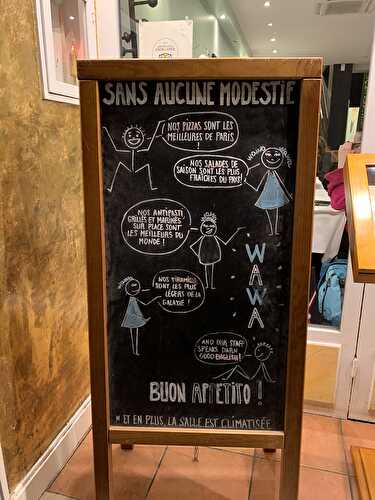 SANS AUCUNE MODESTIE
NOS PIZZAS SONT LES
MEILLEURES DE PARIS
!
NOS SALADES DE
SAISON SONT LES PLUS
FRAÎCHES DU PAYS!
NOS ANTIPASTI,
GRILLÉS ET MARINÉS
SUR PLACE SONT
LES MEILLEURS DU
MONDE !
WAWA
NOS TIRAMISUS
SONT LES PLUS
LÉGERS DE LA
GALAXIE !
AND OUR STAFF
SPEAKS DARN
GOOD ENGLISH!
BUON APPETITO !
* ET EN PLUS, LA SALLE EST CLIMATISÉE